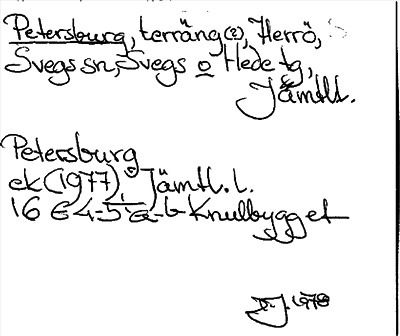 Petersburg, terräng(?), Herrö,
Svegs sn, Svegs o Hede tg,
Jämtl.
Petersburg
ek (1977), Jämtl. l.
16 E 4-5 a-b Knulbygget
1978